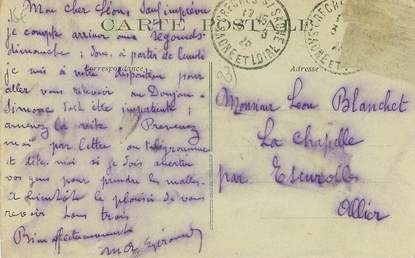 Mon cher Léon, sauf imprévu
je compte arriver aux Regonds
dimanche; donc, à partir de lundi
je suis à votre disposition pour
aller vous recevoir au Donjon.
Simone est impatiente;
amenez la vite. Prévenez
moi par lettre ou télégramme
et dites-moi si je dois
vos gens pour prendre les malles.
A bientôt le plaisir de vous
revoir tous trois
Bien affectueusement
CARTE POSTALE
Correspondance
SAÔNE ET LOIRE
Monsieur Léon Blanchet
La Chapelle
par
Allier